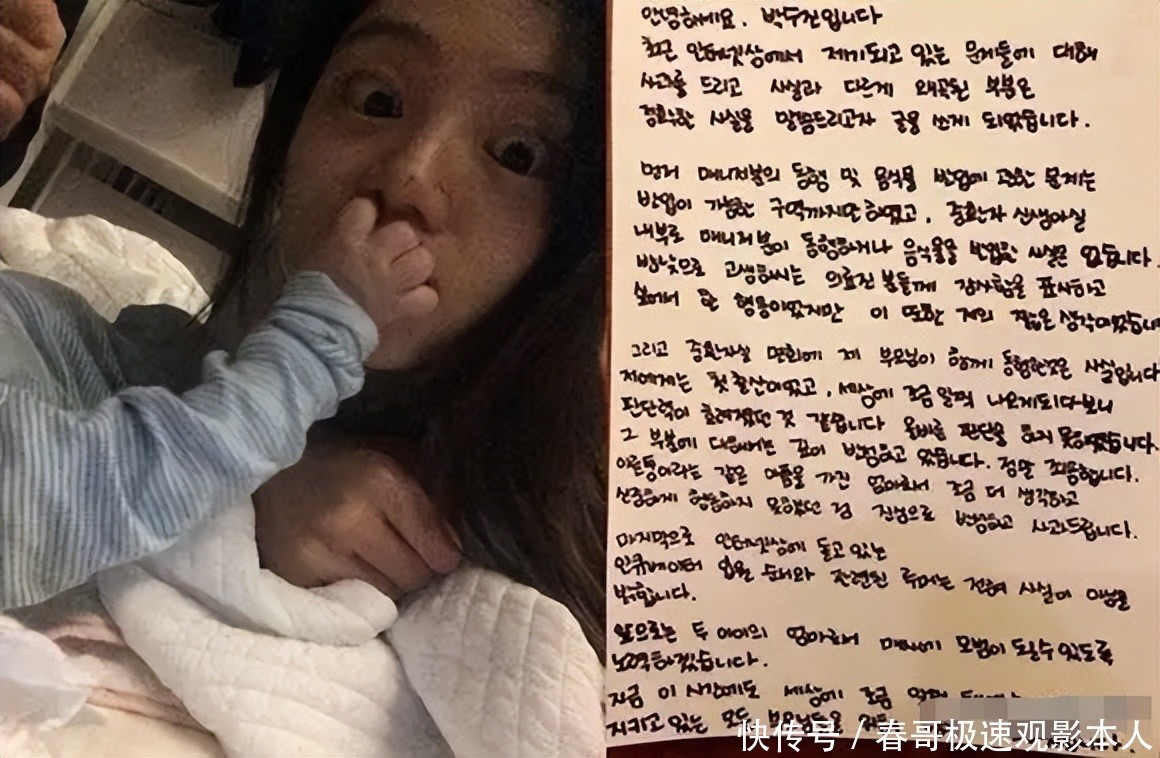 안녕하세요. 박수진입니다
최근 인터넷상에서 제기되고 있는 문제들에 대해
사과를 드리고 사실과 다르게 왜곡된 부분은
정확한 사실을 말씀드리고자 글을 쓰게 되었습니다.
먼저 매니저분의 동행 및 음식물 반입에 관한 문제는
반입이 가능한 구역까지만 하였고, 중환자 신생아실
내부로 매니저분이 동행하거나 음식물을 반입한 사실은 없습니다.
밤낮으로 고생하시는 의료진 분들께 감사함을 표시하고
싶어서 한 행동이었지만 이 또한 저의 짧은 생각이었습니
그리고 중환자실 면회에 제 부모님이 함께 동행한것은 사실입니다
저에게는 첫 출산이었고, 세상에 조금 일찍 나오게되다보니
판단력이 흐려졌던 것 같습니다 올바른 판단을 하지 못하였습니다.
그 부분에 대해서는 깊이 반성하고 있습니다. 정말 죄송합니다.
이른둥이라는 같은 아픔을 가진 엄마로서 조금 더 생각하고
신중하게 행동하지 못했던 점 진심으로 반성하고 사과드립니다.
마지막으로 인터넷상에 돌고 있는
인큐베이터 입원 순서와 관련된 루머는 전혀 사실이 아님을
밝힙니다.
앞으로는 두 아이의 엄마로서 매사에 모범이 될수 있도록
노력하겠습니다.
지금 이 시간에도 세상에 조금 일찍
지키고 있는 모든 부모님들을
快传号 / 春哥极速观影本人